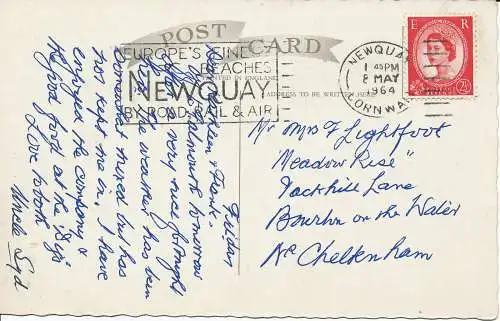 POST CARD
EUROPE'S FINE
BEACHES
NEWQUAY
BY ROAD, RAIL & AIR
PRINTED IN ENGLAND
ADDRESS TO BE WRITTEN HERE
NEWQUAY
1 45PM
8 MAY
1964
CORNWALL
E R
2½
Friday
Dear Helen & Frank,
Falmouth tomorrow
after a very nice fortnight
The weather has been
somewhat mixed but has
not kept me in. I have
enjoyed the company &
the good food at the
Love to both
Uncle Syd
Mr & Mrs F Lightfoot
"Meadow Rise"
Lane
Bourton on the Water
Nr Cheltenham